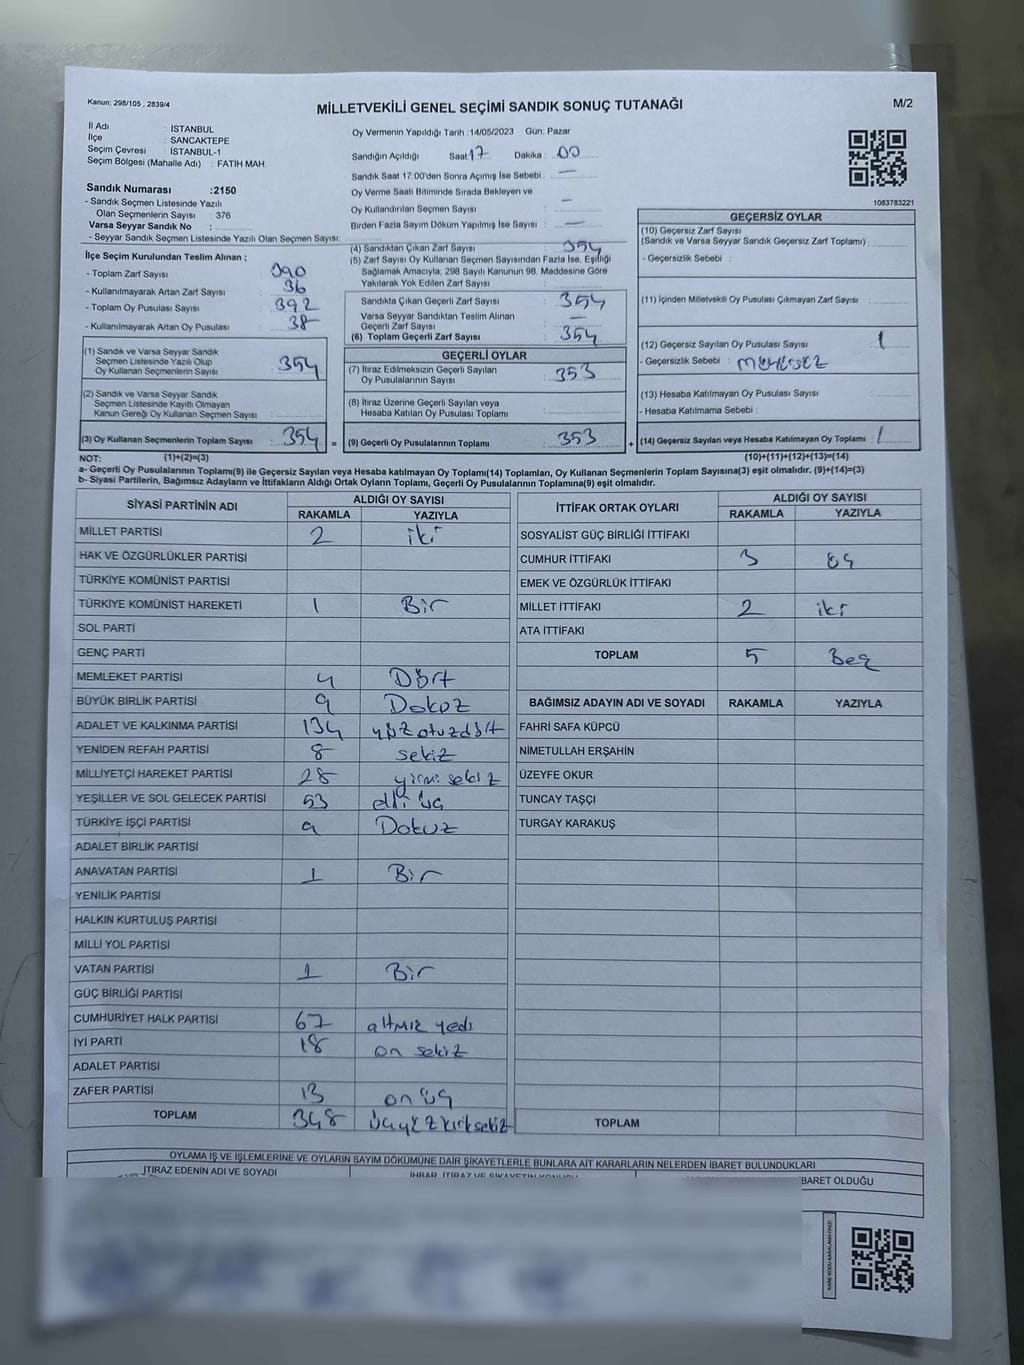 Kanun; 298/105 , 2839/4
MİLLETVEKİLİ GENEL SEÇİMİ SANDIK SONUÇ TUTANAĞI
M/2
İl Adı : İSTANBUL
İlçe : SANCAKTEPE
Seçim Çevresi : İSTANBUL-1
Seçim Bölgesi (Mahalle Adı) : FATİH MAH.
Sandık Numarası :2150
- Sandık Seçmen Listesinde Yazılı
Olan Seçmenlerin Sayısı : 376
Varsa Seyyar Sandık No :
- Seyyar Sandık Seçmen Listesinde Yazılı Olan Seçmen Sayısı:
Oy Vermenin Yapıldığı Tarih :14/05/2023 Gün: Pazar
Sandığın Açıldığı Saat: 17 Dakika : 00
Sandık Saat 17:00'den Sonra Açımış İse Sebebi : —
Oy Verme Saati Bitiminde Sırada Bekleyen ve
Oy Kullandırılan Seçmen Sayısı : —
Birden Fazla Sayım Döküm Yapılmış İse Sayısı : —
1083783221
İlçe Seçim Kurulundan Teslim Alınan ;
- Toplam Zarf Sayısı : 390
- Kullanılmayarak Artan Zarf Sayısı : 36
- Toplam Oy Pusulası Sayısı : 392
- Kullanılmayarak Artan Oy Pusulası : 38
(1) Sandık ve Varsa Seyyar Sandık
Seçmen Listesinde Yazılı Olup
Oy Kullanan Seçmenlerin Sayısı : 354
(2) Sandık ve Varsa Seyyar Sandık
Seçmen Listesinde Kayıtlı Olmayan
Kanun Gereği Oy Kullanan Seçmen Sayısı :
(3) Oy Kullanan Seçmenlerin Toplam Sayısı : 354 =
(4) Sandıktan Çıkan Zarf Sayısı : 354
(5) Zarf Sayısı Oy Kullanan Seçmen Sayısından Fazla İse, Eşitliği
Sağlamak Amacıyla, 298 Sayılı Kanunun 98. Maddesine Göre
Yakılarak Yok Edilen Zarf Sayısı :
Sandıkta Çıkan Geçerli Zarf Sayısı : 354
Varsa Seyyar Sandıktan Teslim Alınan
Geçerli Zarf Sayısı : —
(6) Toplam Geçerli Zarf Sayısı : 354
GEÇERLİ OYLAR
(7) İtiraz Edilmeksizin Geçerli Sayılan
Oy Pusulalarının Sayısı : 353
(8) İtiraz Üzerine Geçerli Sayılan veya
Hesaba Katılan Oy Pusulası Toplamı :
(9) Geçerli Oy Pusulalarının Toplamı : 353 +
GEÇERSİZ OYLAR
(10) Geçersiz Zarf Sayısı
(Sandık ve Varsa Seyyar Sandık Geçersiz Zarf Toplamı) :
- Geçersizlik Sebebi :
(11) İçinden Milletvekili Oy Pusulası Çıkmayan Zarf Sayısı :
(12) Geçersiz Sayılan Oy Pusulası Sayısı : 1
- Geçersizlik Sebebi : MÜHÜRSÜZ
(13) Hesaba Katılmayan Oy Pusulası Sayısı :
- Hesaba Katılmama Sebebi :
(14) Geçersiz Sayılan veya Hesaba Katılmayan Oy Toplamı : 1
NOT: (1)+(2)=(3) (10)+(11)+(12)+(13)=(14)
a- Geçerli Oy Pusulalarının Toplamı(9) ile Geçersiz Sayılan veya Hesaba katılmayan Oy Toplamı(14) Toplamları, Oy Kullanan Seçmenlerin Toplam Sayısına(3) eşit olmalıdır. (9)+(14)=(3)
b- Siyasi Partilerin, Bağımsız Adayların ve İttifakların Aldığı Ortak Oyların Toplamı, Geçerli Oy Pusulalarının Toplamına(9) eşit olmalıdır.
SİYASİ PARTİNİN ADI ALDIĞI OY SAYISI
RAKAMLA YAZIYLA
MİLLET PARTİSİ 2 iki
HAK VE ÖZGÜRLÜKLER PARTİSİ
TÜRKİYE KOMÜNİST PARTİSİ
TÜRKİYE KOMÜNİST HAREKETİ 1 Bir
SOL PARTİ
GENÇ PARTİ
MEMLEKET PARTİSİ 4 Dört
BÜYÜK BİRLİK PARTİSİ 9 Dokuz
ADALET VE KALKINMA PARTİSİ 134 yüz otuzdört
YENİDEN REFAH PARTİSİ 8 sekiz
MİLLİYETÇİ HAREKET PARTİSİ 28 yirmi sekiz
YEŞİLLER VE SOL GELECEK PARTİSİ 53 elli üç
TÜRKİYE İŞÇİ PARTİSİ 9 Dokuz
ADALET BİRLİK PARTİSİ
ANAVATAN PARTİSİ 1 Bir
YENİLİK PARTİSİ
HALKIN KURTULUŞ PARTİSİ
MİLLİ YOL PARTİSİ
VATAN PARTİSİ 1 Bir
GÜÇ BİRLİĞİ PARTİSİ
CUMHURİYET HALK PARTİSİ 67 altmız yedi
İYİ PARTİ 18 on sekiz
ADALET PARTİSİ
ZAFER PARTİSİ 13 on üç
TOPLAM 348 üçyüz kırksekiz
İTTİFAK ORTAK OYLARI ALDIĞI OY SAYISI
RAKAMLA YAZIYLA
SOSYALİST GÜÇ BİRLİĞİ İTTİFAKI
CUMHUR İTTİFAKI 3 üç
EMEK VE ÖZGÜRLÜK İTTİFAKI
MİLLET İTTİFAKI 2 iki
ATA İTTİFAKI
TOPLAM 5 Beş
BAĞIMSIZ ADAYIN ADI VE SOYADI RAKAMLA YAZIYLA
FAHRİ SAFA KÜPCÜ
NİMETULLAH ERŞAHİN
ÜZEYFE OKUR
TUNCAY TAŞÇI
TURGAY KARAKUŞ
TOPLAM
OYLAMA İŞ VE İŞLEMLERİNE VE OYLARIN SAYIM DÖKÜMÜNE DAİR ŞİKAYETLERLE BUNLARA AİT KARARLARIN NELERDEN İBARET BULUNDUKLARI
İTİRAZ EDENİN ADI VE SOYADI
İHBAR, İTİRAZ VE ŞİKAYETİN KONUSU
BARET OLDUĞU